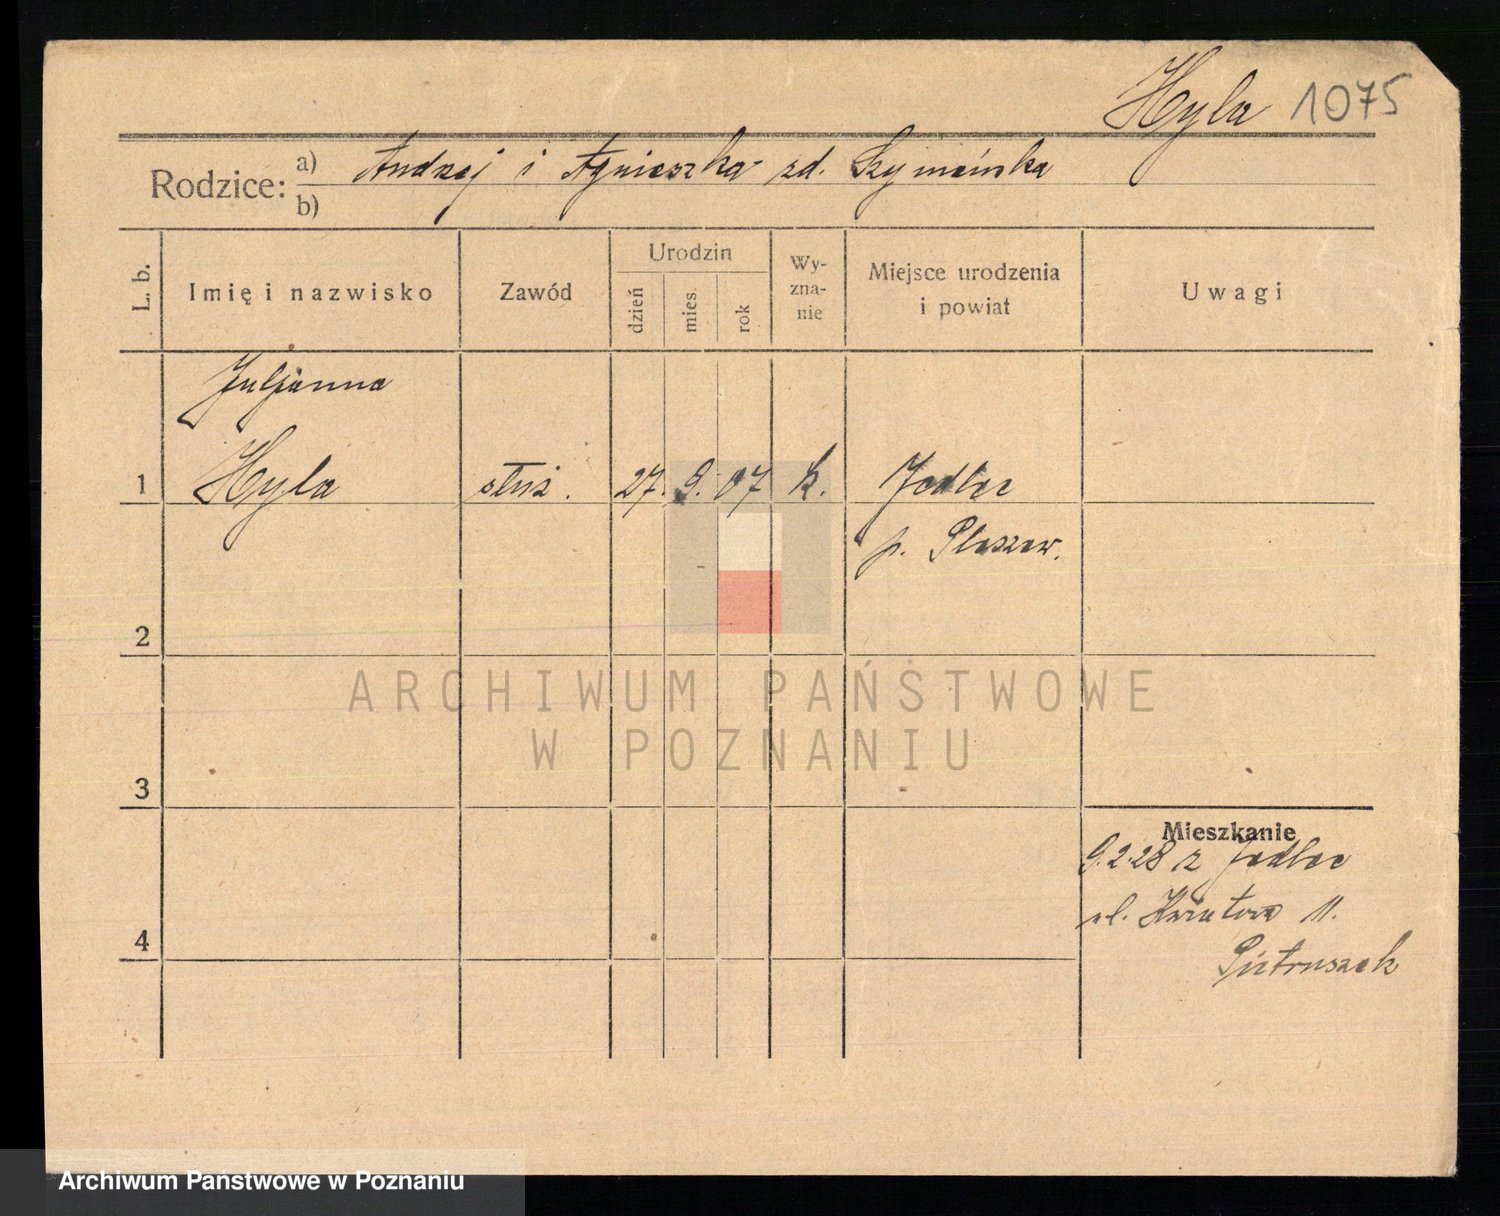 Hyla 1075
Rodzice: a) Andrzej i Agnieszka zd. Szymańska
b)
L. b.
Imię i nazwisko
Zawód
Urodzin
dzień
mies.
rok
Wy-
zna-
nie
Miejsce urodzenia
i powiat
Uwagi
Juljanna
1 Hyla służ. 27. 9. 07 k. Jedlec
p. Pleszew.
2
ARCHIWUM PAŃSTWOWE
W POZNANIU
3
Mieszkanie
9.2.28 z Jedlec
ul. Kwiatowa 11.
4
Pietruszak
Archiwum Państwowe w Poznaniu